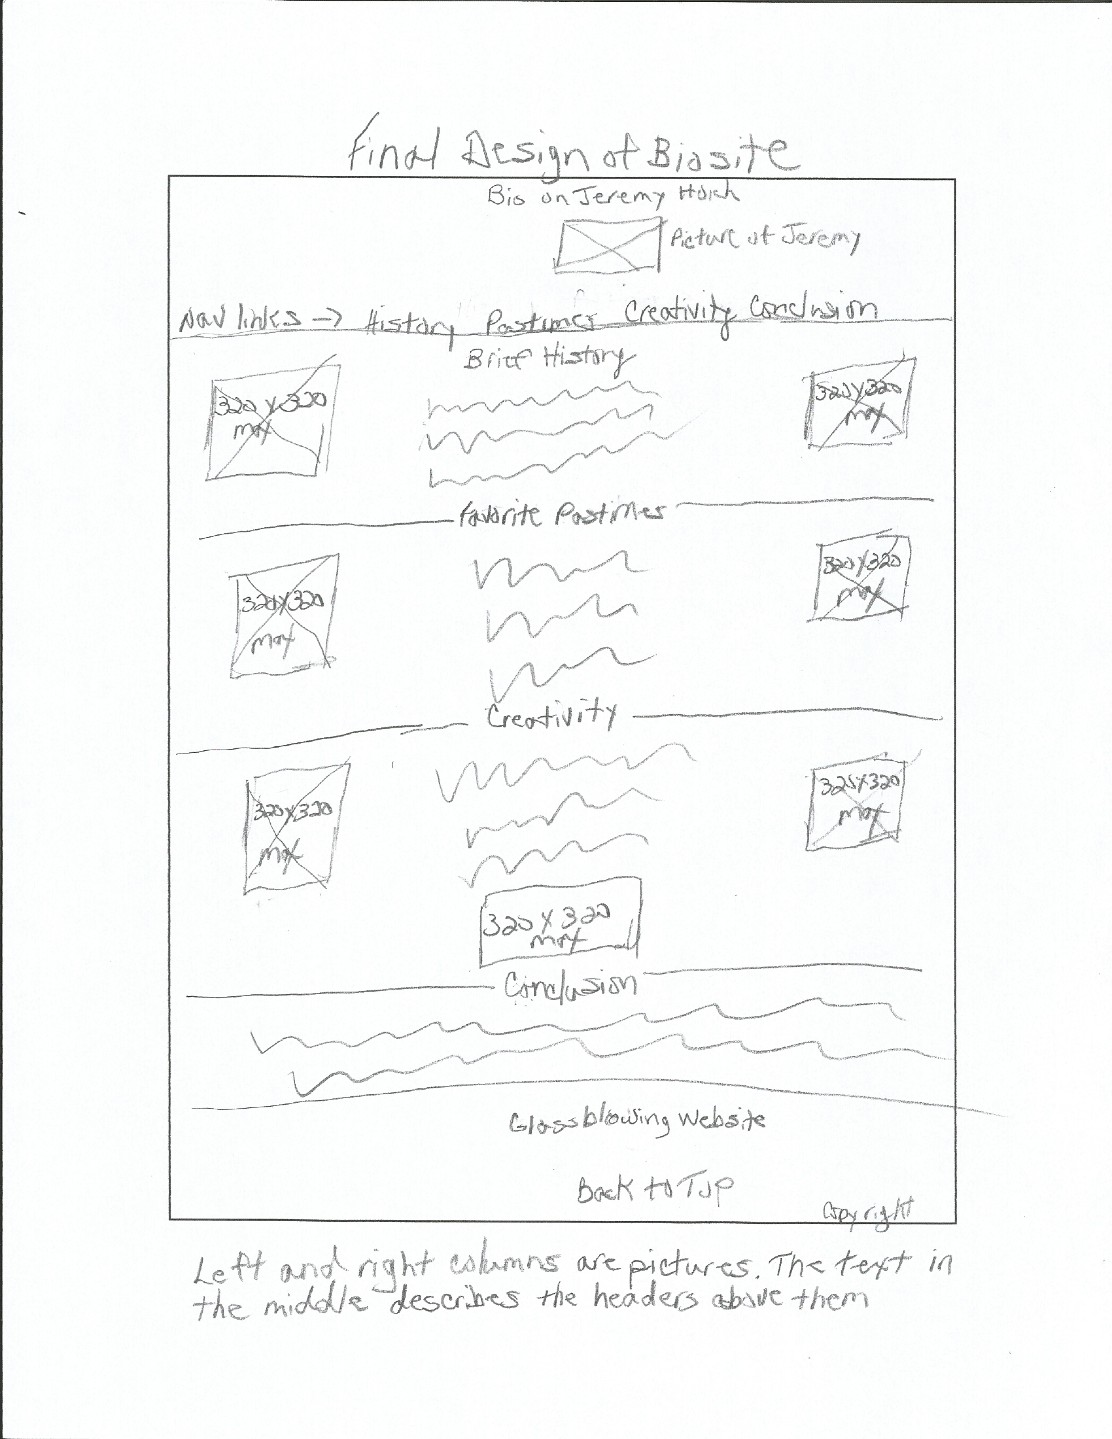 Final Design of Biosite
Bio on Jeremy
Picture of Jeremy
Nav links → History Pastimes Creativity Conclusion
Brief History
320 X 320
max
320 X 320
max
Favorite Pastimes
320 X 320
max
320 X 320
max
Creativity
320 X 320
max
320 X 320
max
320 X 320
max
Conclusion
Glassblowing Website
Back to Top
Copyright
Left and right columns are pictures. The text in
the middle describes the headers above them